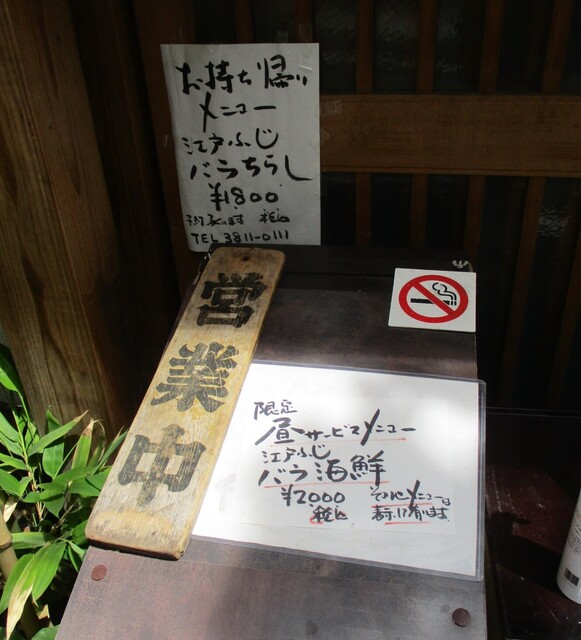 お持ち帰り
メニュー
江戸ふじ
バラちらし
¥1800
予約承ります 税込
TEL 3811-0111
営業中
限定
昼サービスメニュー
江戸ふじ
バラ海鮮
¥2000
税込
その他メニューは
表示に有ります